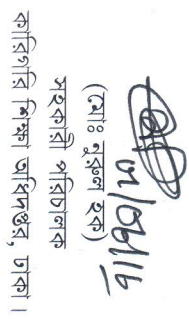 (মোঃ নুরুল হক)
সহকারী পরিচালক
কারিগরি শিক্ষা অধিদপ্তর, ঢাকা।